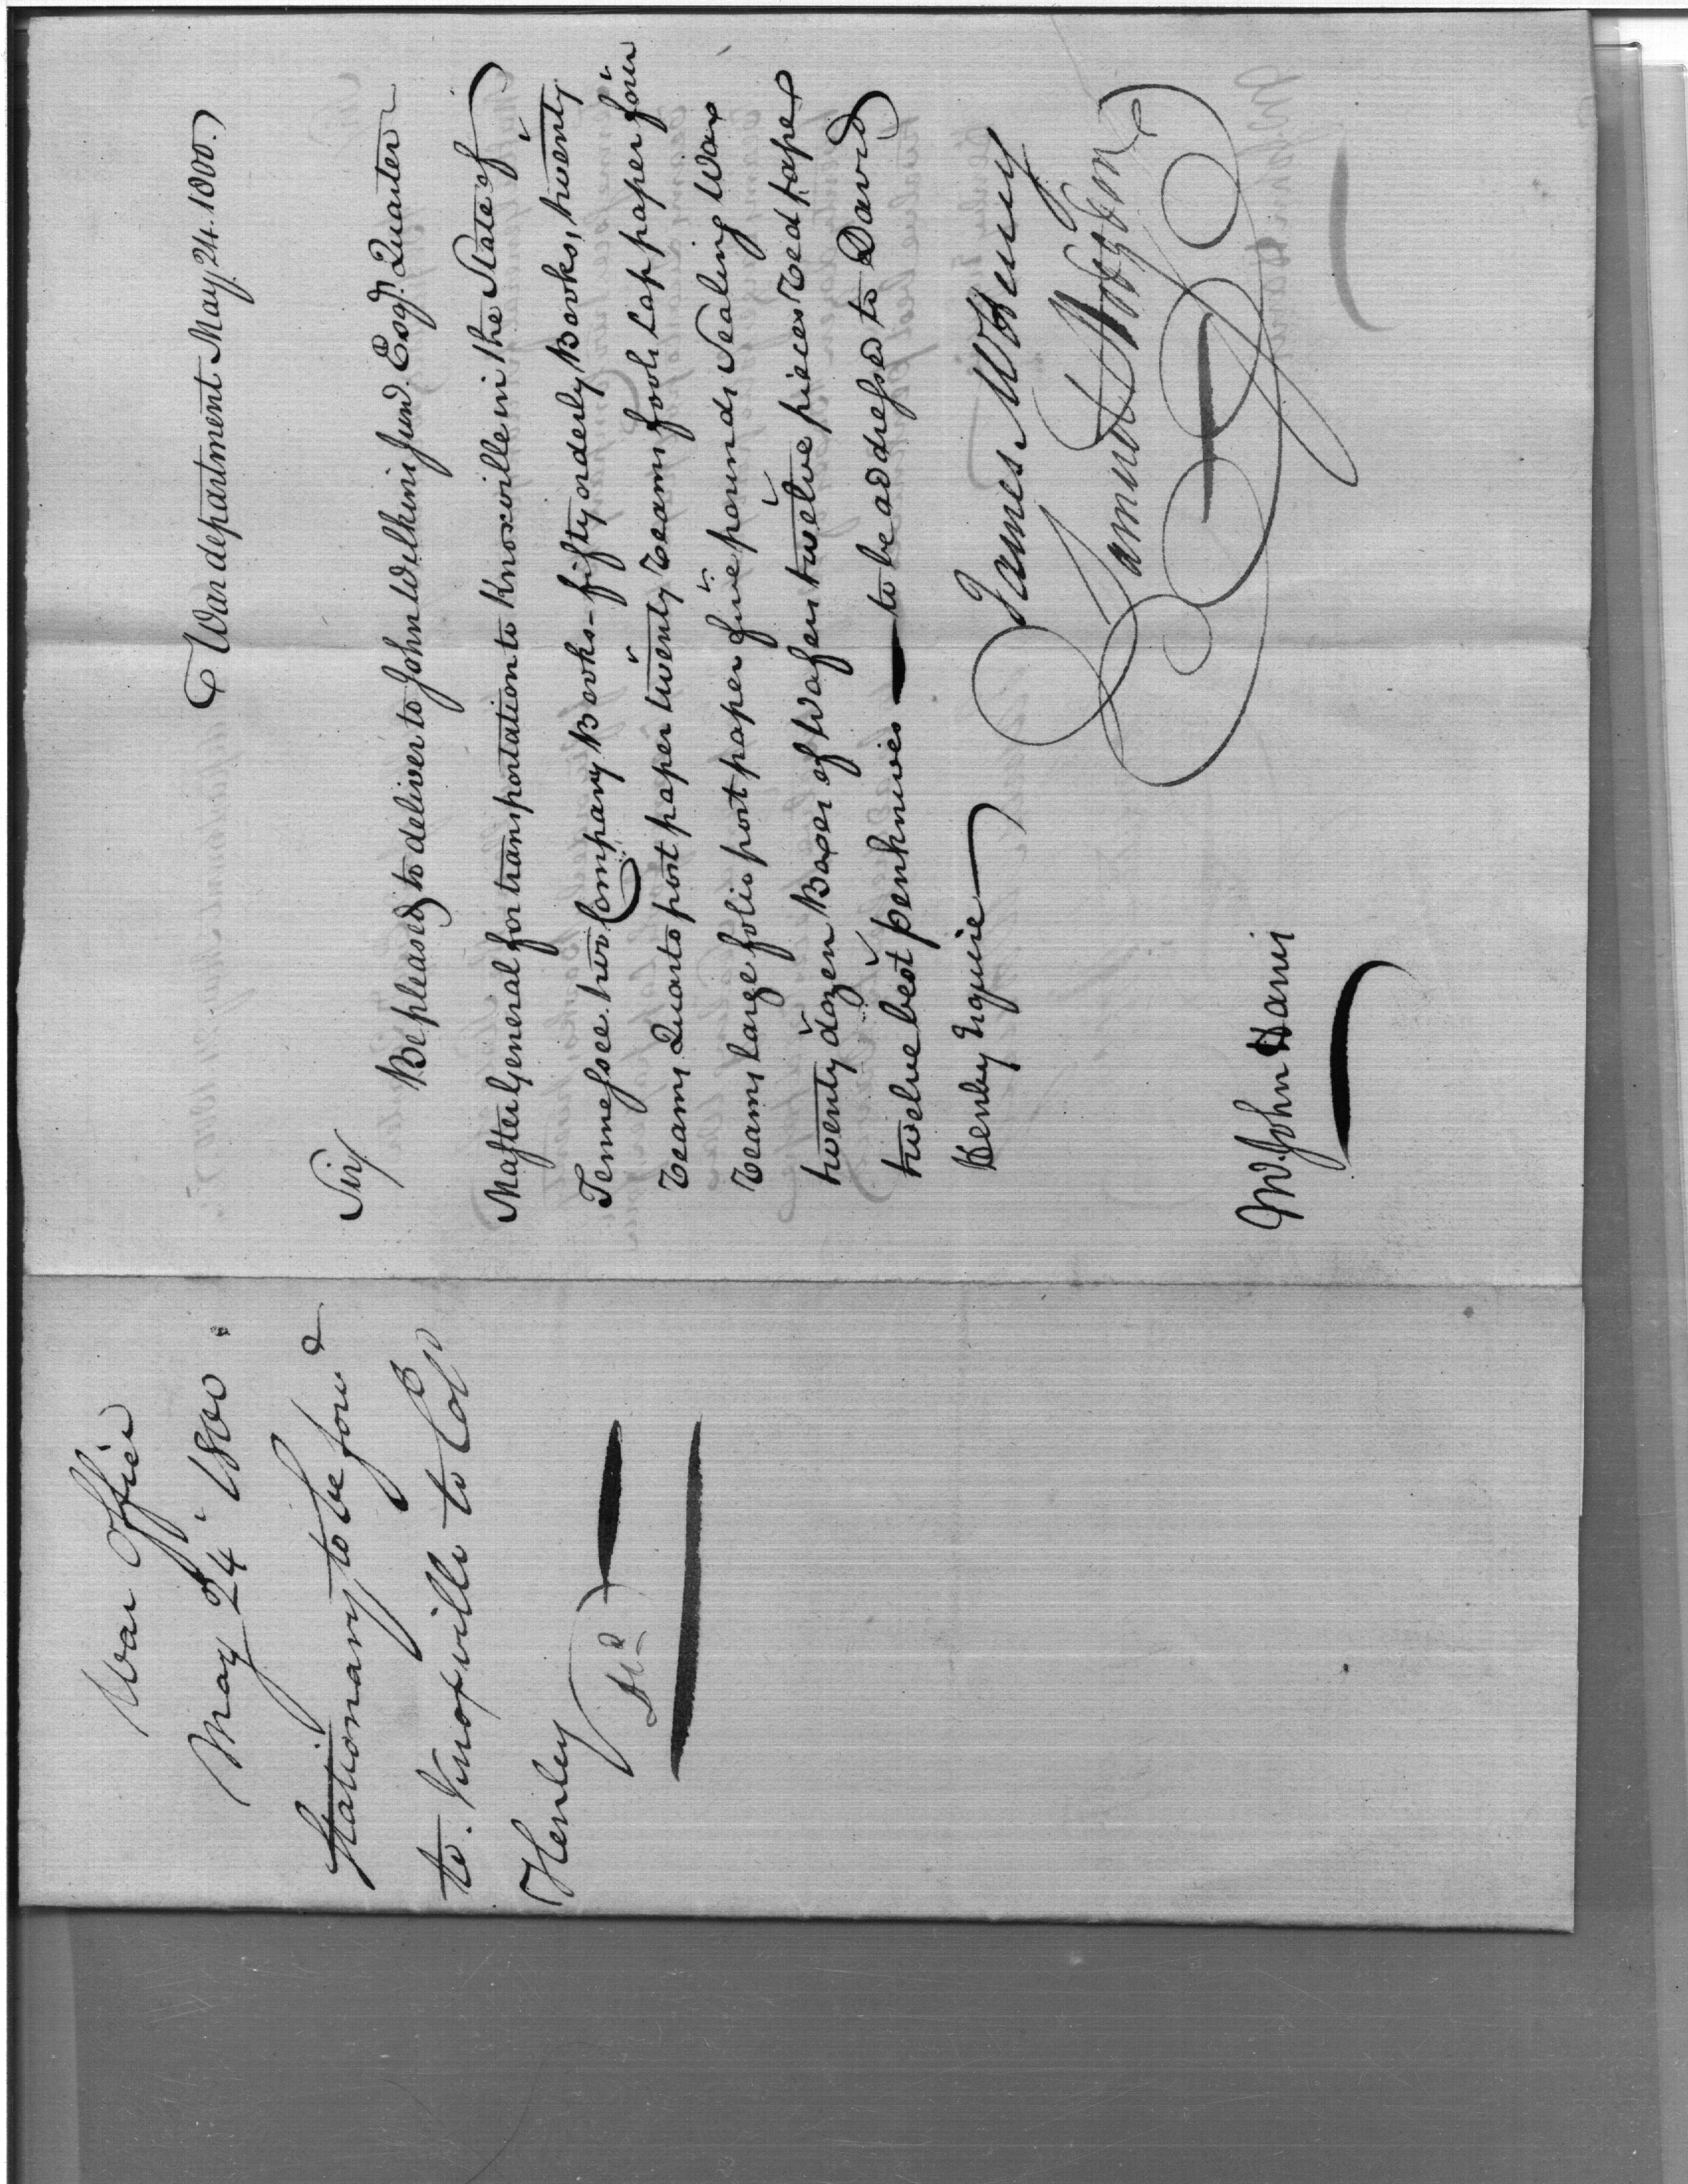 War department May 24. 1800.
Sir,
Be pleased to deliver to John Wilkins jun.r Esq.r Quarter
Master General for transportation to Knoxville in the State of
Tennessee. two Company Books - fifty orderly Books, twenty
reams Quarto post paper twenty reams fools Cap paper four
reams large folio post paper five pounds Sealing Wax
twenty dozen Boxes of Wafers twelve pieces red tape
twelve best penknives — to be addressed to David
Henley Esquire
James McHenry
Samuel Hodgdon
Mr. John Harris
War Office
May 24th 1800.
Stationary to be forw.d
to. Knoxville to Col.o
Henley